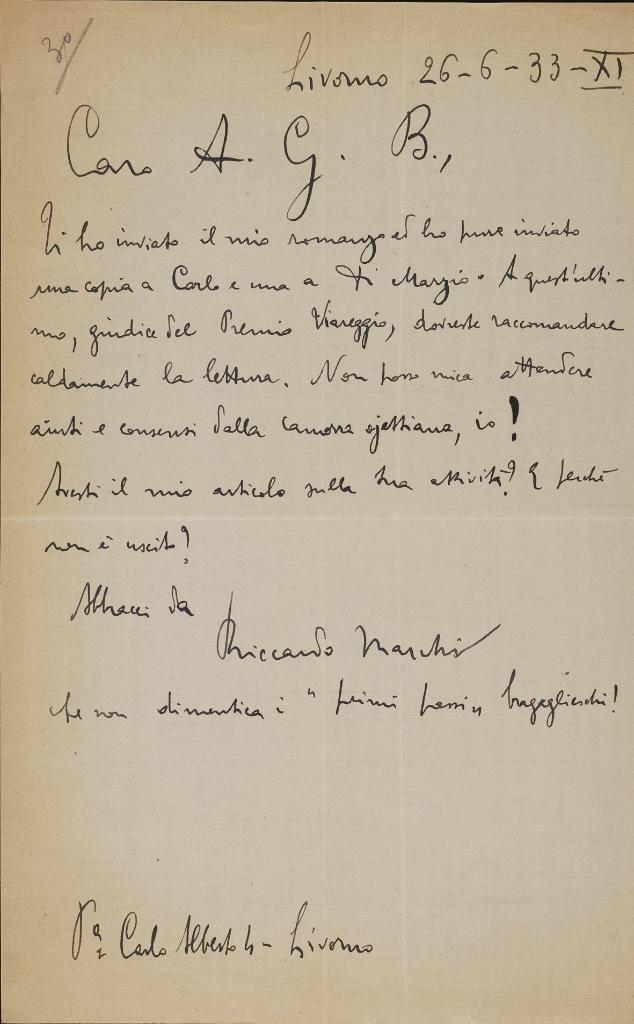 30
Livorno 26-6-33-XI
Caro A. G. B.,
Ti ho inviato il mio romanzo ed ho pure inviato
una copia a Carlo e una a Di Marzio. A quest'ulti-
mo, giudice del Premio Viareggio, dovreste raccomandare
caldamente la lettura. Non posso mica attendere
aiuti e consensi dalla camorra ojettiana, io!
Avesti il mio articolo sulla tua attività? E perchè
non è uscito?
Abbracci da
Riccardo Marchi
che non dimentica i "primi passi" bragaglieschi!
Pza Carlo Alberto 4 - Livorno